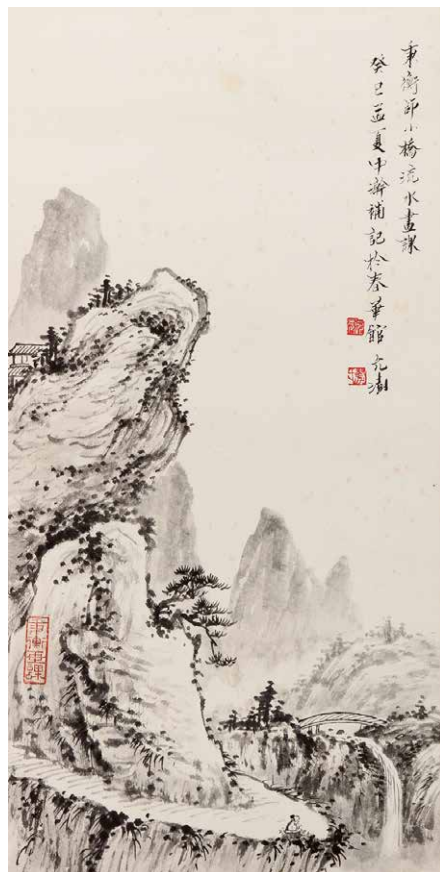 秉衡師小橋流水畫課
癸巳孟夏中澣補記於春華館